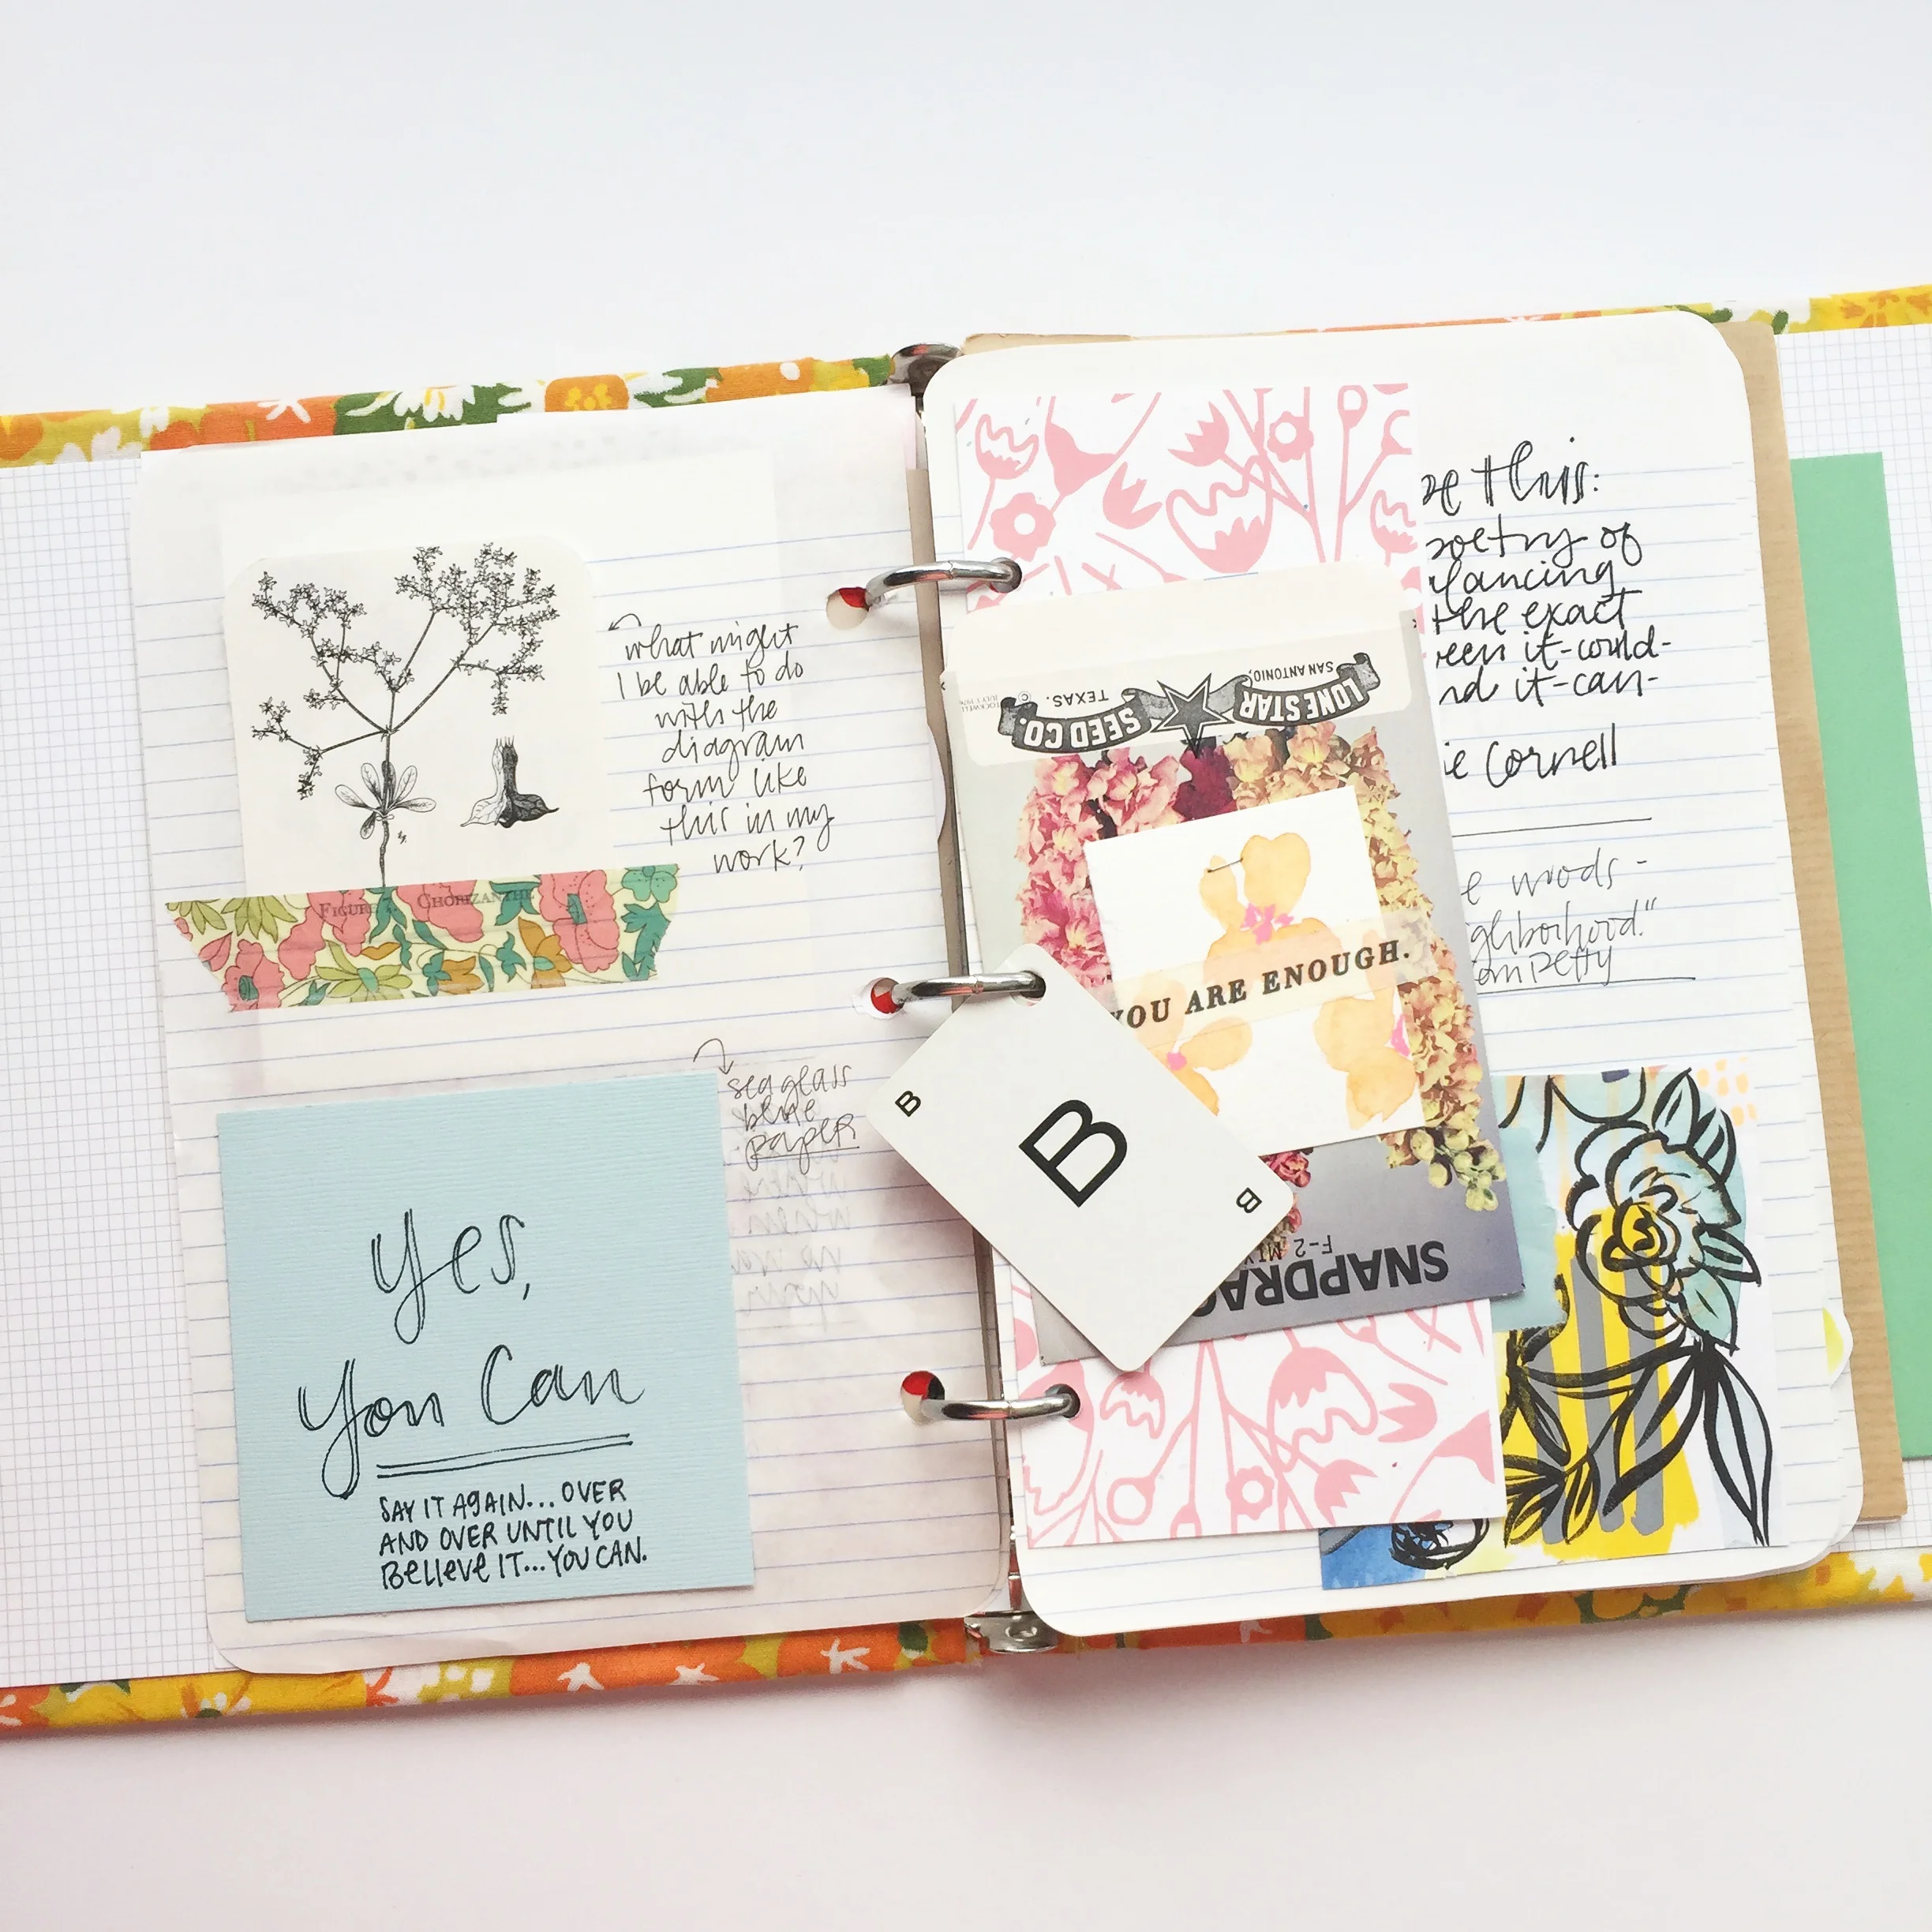 what might
I be able to do
with the
diagram
form like
this in my
work?
FIGURE CHORIZANTHE
sea glass
blue
paper
yes,
you can
SAY IT AGAIN... OVER
AND OVER UNTIL YOU
BELIEVE IT... YOU CAN.
this:
of
the exact
it-could-
it-can-
Cornell
woods-
Petty
LONE STAR
SEED CO.
SAN ANTONIO,
TEXAS.
YOU ARE ENOUGH.
B
B
B
F-2
SNAPDRAG